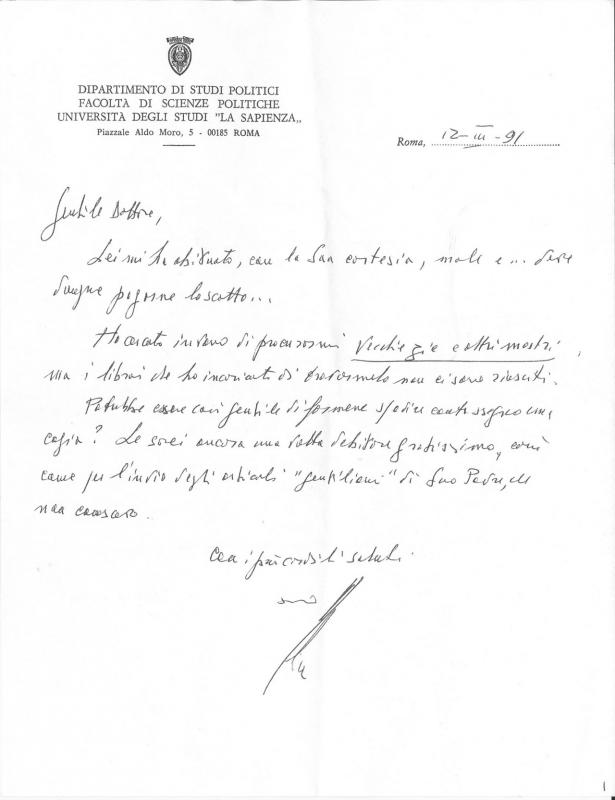 DIPARTIMENTO DI STUDI POLITICI
FACOLTÀ DI SCIENZE POLITICHE
UNIVERSITÀ DEGLI STUDI "LA SAPIENZA„
Piazzale Aldo Moro, 5 - 00185 ROMA
Roma, 12-III-91
Gentile Dottore,
Lei mi ha abituato, con la Sua cortesia, male e... deve
dunque pagarne lo scotto...
Ho cercato invano di procurarmi Vecchie zie e altri mostri,
ma i librai che ho incaricato di trovarmelo non ci sono riusciti.
Potrebbe essere così gentile di farmene spedire contrassegno una
copia? Le sarei ancora una volta debitore gratissimo, così
come per l'invio degli articoli "gentiliani" di Suo Padre, che
non conoscevo.
Con i più cordiali saluti.
suo